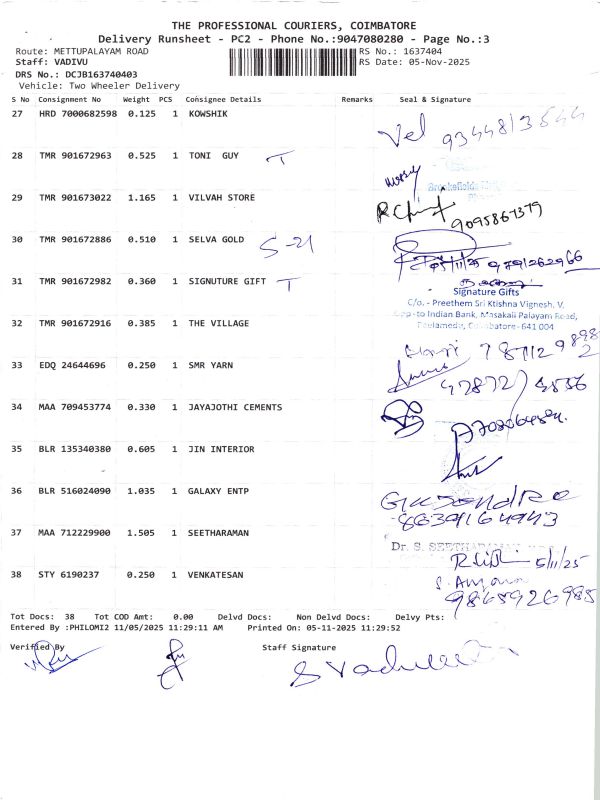 THE PROFESSIONAL COURIERS, COIMBATORE
Delivery Runsheet - PC2 - Phone No.:9047080280 - Page No.:3
Route: METTUPALAYAM ROAD RS No.: 1637404
Staff: VADIVU RS Date: 05-Nov-2025
DRS No.: DCJB163740403
Vehicle: Two Wheeler Delivery
S No Consignment No Weight PCS Consignee Details Remarks Seal & Signature
27 HRD 7000682598 0.125 1 KOWSHIK
Vel
28 TMR 901672963 0.525 1 TONI GUY T
29 TMR 901673022 1.165 1 VILVAH STORE
9095867379
30 TMR 901672886 0.510 1 SELVA GOLD S-21
31 TMR 901672982 0.360 1 SIGNUTURE GIFT T
Signature Gifts
C/o. - Preethem Sri Ktishna Vignesh, V.
to Indian Bank, Masakali Palayam Road,
Peelamedu, Coimbatore- 641 004
32 TMR 901672916 0.385 1 THE VILLAGE
33 EDQ 24644696 0.250 1 SMR YARN
34 MAA 709453774 0.330 1 JAYAJOTHI CEMENTS
35 BLR 135340380 0.605 1 JIN INTERIOR
36 BLR 516024090 1.035 1 GALAXY ENTP
37 MAA 712229900 1.505 1 SEETHARAMAN
Dr. S. SEETHARAMAN
5/11/25
38 STY 6190237 0.250 1 VENKATESAN
9865926985
Tot Docs: 38 Tot COD Amt: 0.00 Delvd Docs: Non Delvd Docs: Delvy Pts:
Entered By :PHILOMI2 11/05/2025 11:29:11 AM Printed On: 05-11-2025 11:29:52
Verified By Staff Signature